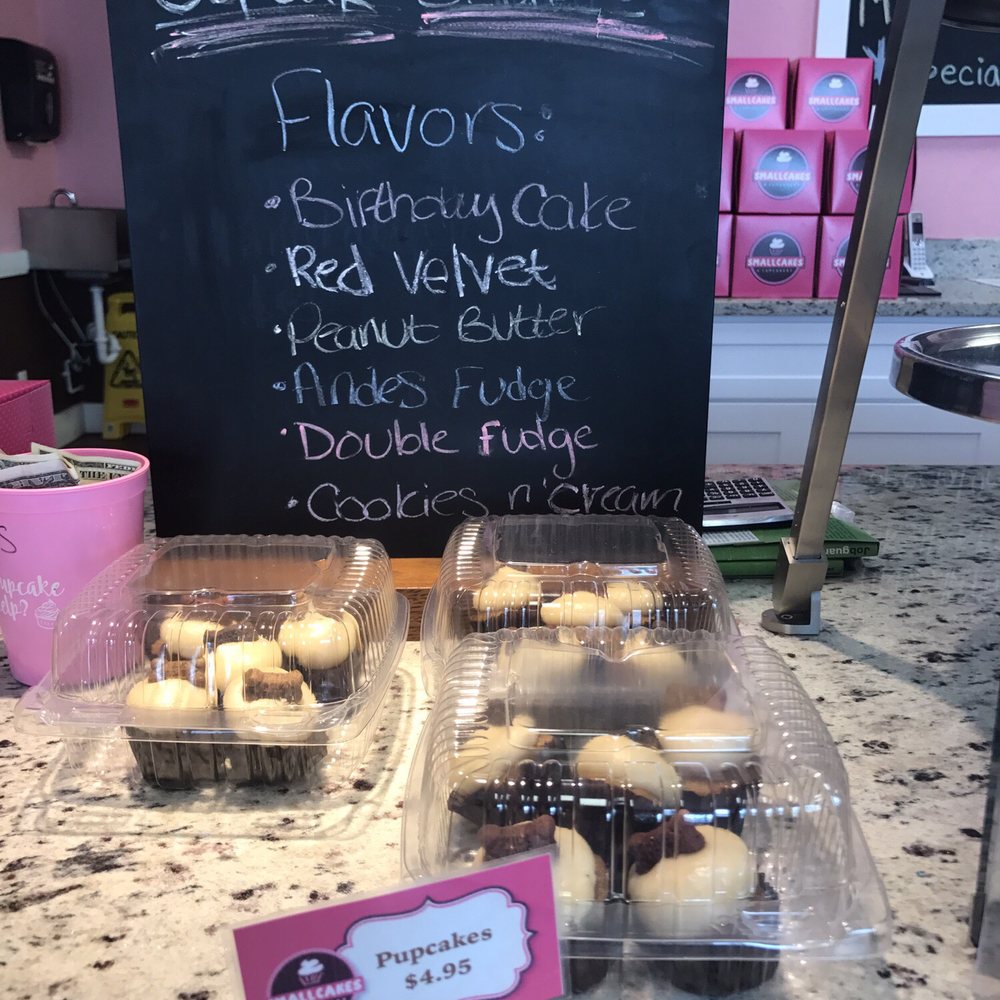 Flavors:
• Birthday Cake
• Red Velvet
• Peanut Butter
• Andes Fudge
• Double Fudge
• Cookies n' cream
SMALLCAKES
SMALLCAKES
SMALLCAKES
SMALLCAKES
Pupcakes
$4.95
SMALLCAKES
Jobguar